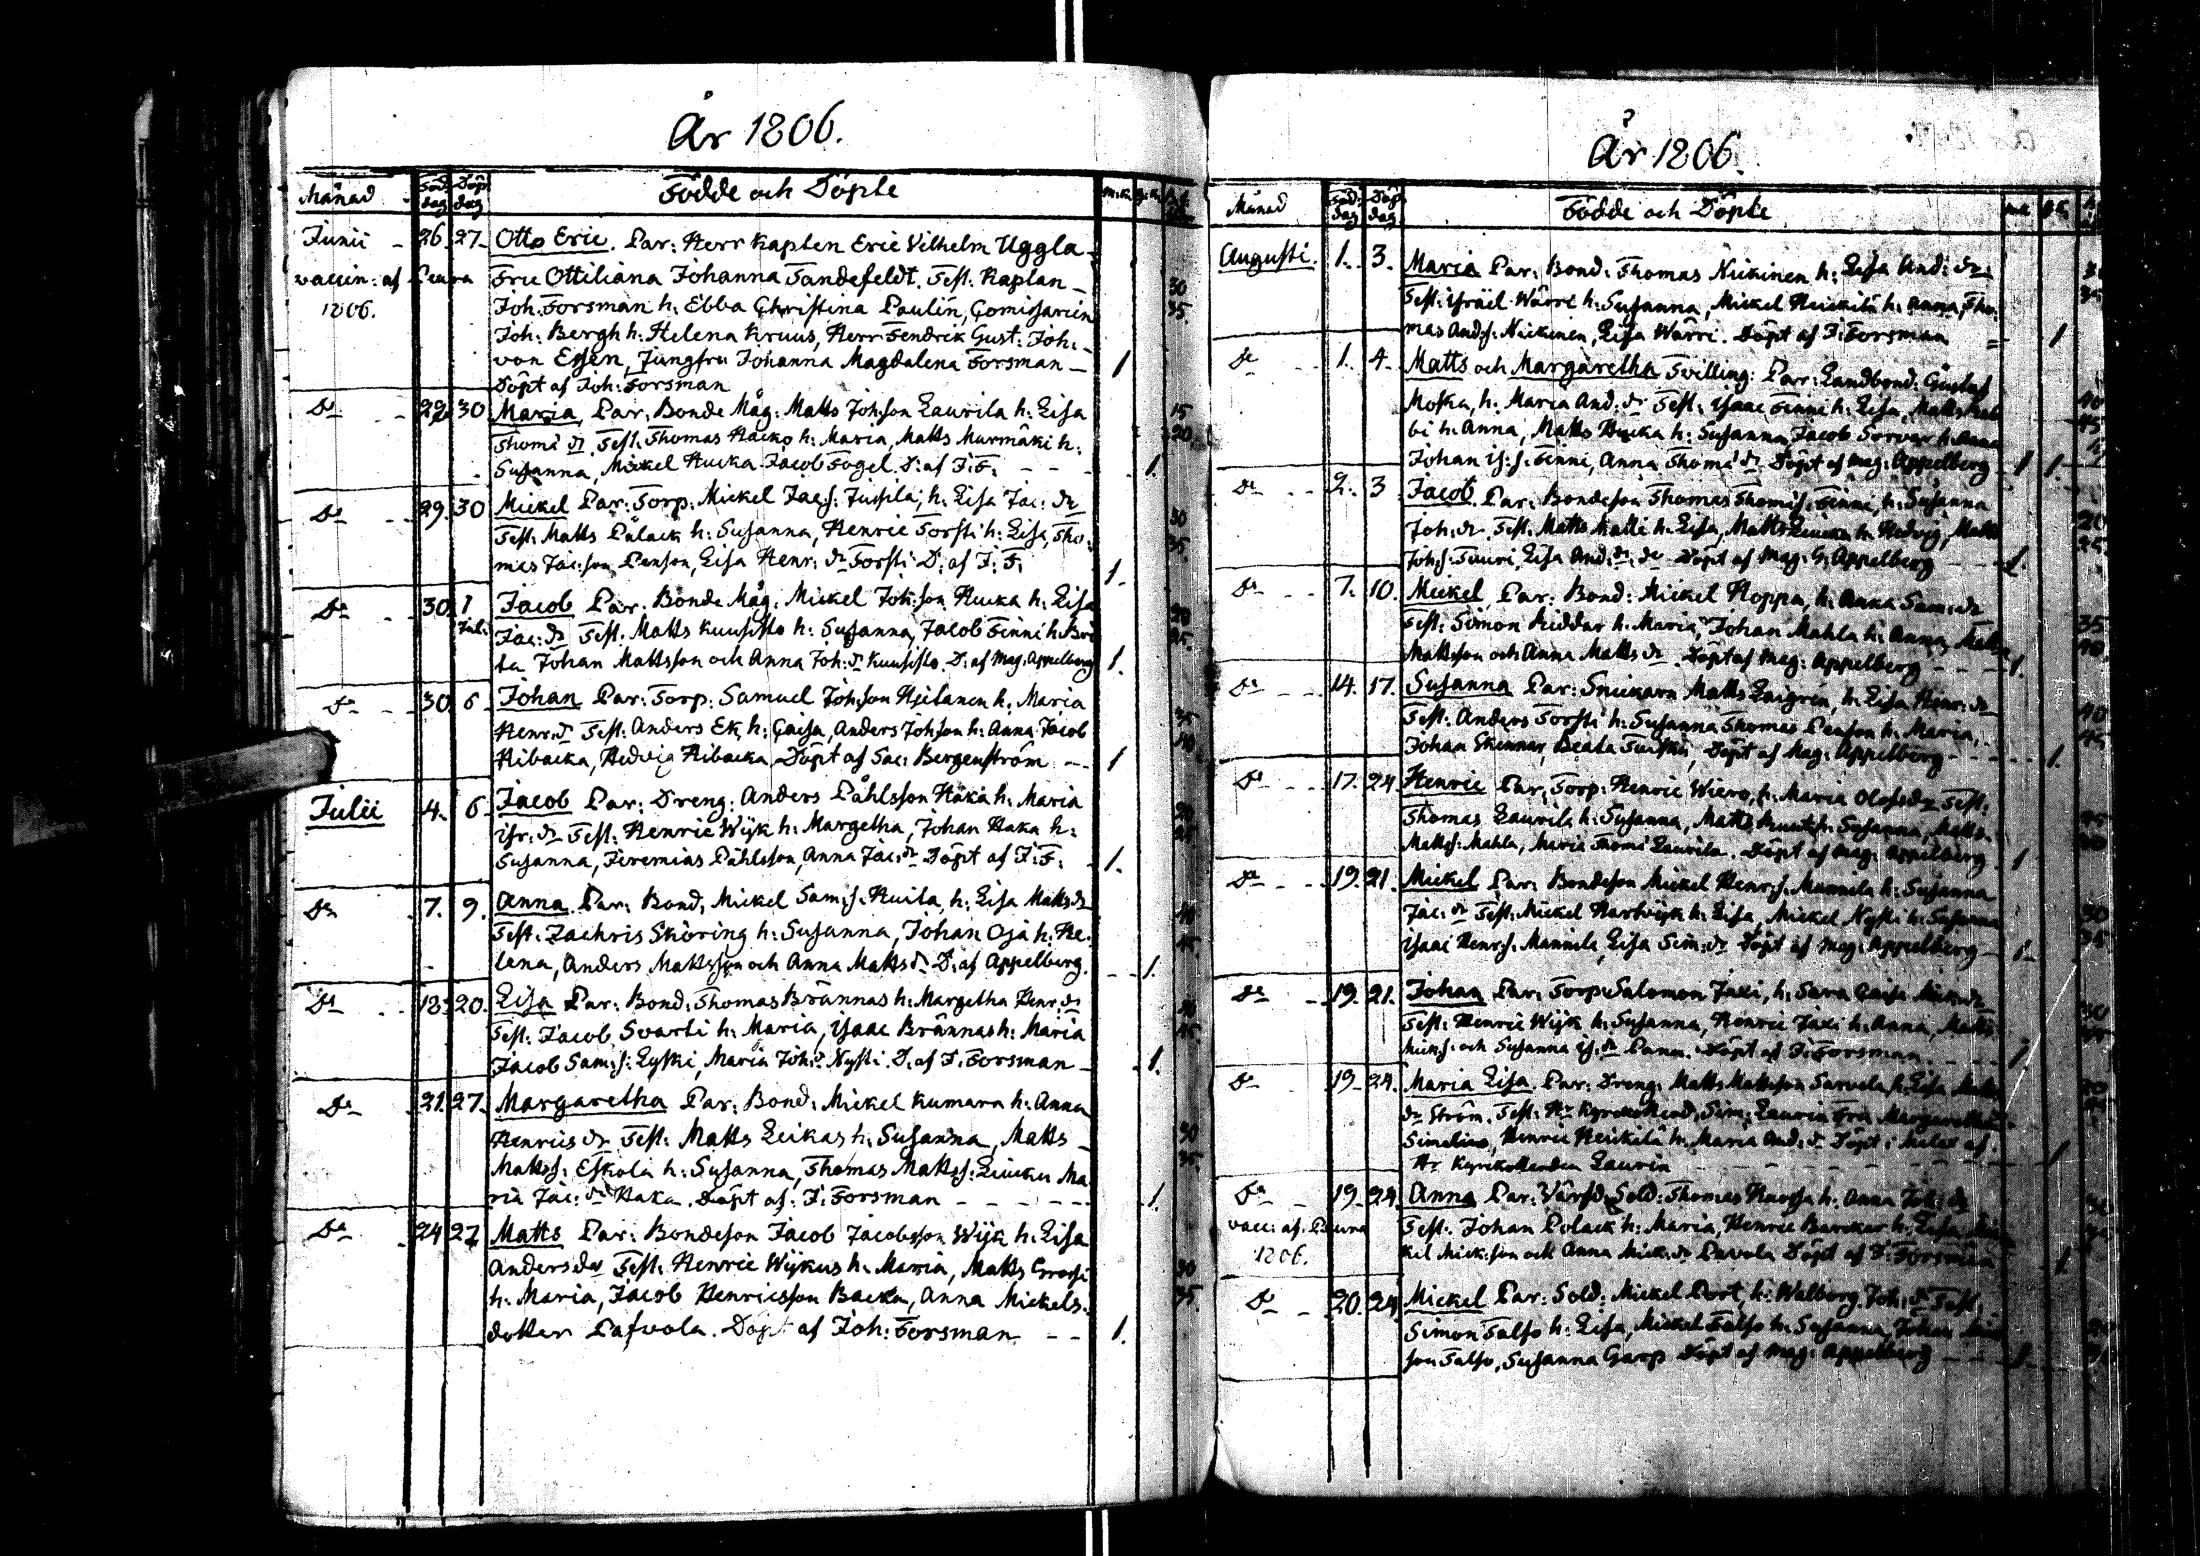 År 1806.
Månad Föd. dag Döp dag Födde och Döpte m.k. q.k.
Junii 26. 27. Otto Eric. Par: Herr Kapten Eric Vilhelm Uggla
vaccin: af Fru Ottiliana Johanna Tandefeldt. Test. Kaplan 30
1806. Joh. Forsman h: Ebba Christina Paulin, Comissarien 35.
Joh: Bergh h: Helena Kruus, Herr Fendrik Gust: Joh:
von Essen, Jungfru Johanna Magdalena Forsman 1
Döpt af Joh: Forsman
Do 29 30 Maria, Par: Bonde Måg: Matts Johsson Laurila h: Lisa 15
Thomæ dr Test: Thomas Hacko h: Maria, Matts Murmäki h: 20
Susanna, Mickel Hucka Jacob Fogel D: af J: F: 1.
Do 29. 30 Mickel Par: Torp: Mickel Jac:s: Jussila, h: Lisa Jac: dr
Test: Matts Pålack h: Susanna, Henric Torsti h: Lisa, Tho: 30
mas Jac:son Penson, Lisa Henr: dr Torsti D: af J: F: 1. 35
Do 30. 1 Jul: Jacob Par: Bonde Måg: Mickel Joh:son Hucka h: Lisa
Jac: dr Test. Matts Kuusisto h: Susanna, Jacob Finni h: Bri
ta Johan Mattsson och Anna Joh: dr Kuusisto. D: af Mag: Appelberg 1.
Do 30. 6 Johan Par: Torp: Samuel Johsson Hietanen h: Maria
Henr: dr Test: Anders Ek h: Caisa, Anders Johson h: Anna Jacob 35
Hibacka, Hedvig Hibacka Döpt af Sac: Bergenström 1 40
Julii 4. 6 Jacob Par: Dreng: Anders Påhlsson Haka h: Maria
Isr: dr Test: Henric Wijk h: Margetha, Johan Haka h:
Susanna, Jeremias Påhlsson, Anna Jac: dr Döpt af J: F: 1.
Do 7. 9. Anna Par: Bond: Mickel Sam:s. Huila, h: Lisa Matts dr
Test: Zachris Skoring h: Susanna, Johan Oja h: He: 40
lena, Anders Mattsson och Anna Matts dr D: af Appelberg. 1. 45
Do 18. 20. Lisa Par: Bond: Thomas Brännas h: Margetha Henr: dr
Test: Jacob Svarti h: Maria, Isaac Brännas h: Maria 40
Jacob Sam:s: Lyski, Maria Joh: dr Nysti. D: af J: Forsman 1. 45
Do 21. 27. Margaretha Par: Bond: Mickel Kumara h: Anna
Henrics dr Test: Matts Leikas h: Susanna, Matts 30
Matts: Eskola h: Susanna, Thomas Matts: Leicku Ma 35
ria Jac: dr Haka. Döpt af: J: Forsman 1.
Do 24 27 Matts Par: Bondeson Jacob Jacobsson Wijk h: Lisa
Anders dr Test: Henric Wijkus h: Maria, Matts 30
h: Maria, Jacob Henricsson Backa, Anna Mickels 35.
dotter Pafvola. Döpt af Joh: Forsman 1.
År 1806.
Månad Föd: dag Döp dag Födde och Döpte
Augusti. 1. 3. Maria Par: Bond: Thomas Nickinen h: Lisa And: dr
Test: Israel Wärri h: Susanna, Mickel Heickilä h: Anna, Tho: 35
mas And:s: Nickinen, Lisa Wärri. Döpt af J: Forsman 1
Do 1. 4. Matts och Margaretha Tvilling: Par: Landbond: Gustaf
Moska, h: Maria And: dr Test: Isaac Finni h: Lisa, Matts 40
bi h: Anna, Matts Hucka h: Susanna, Jacob Sorvar h: Anna 45
Johan Is:s: Finni, Anna Thomæ dr Döpt af Mag: Appelberg 1 1
Do 2. 3 Jacob Par: Bondeson Thomas Thomæs: Finni, h: Susanna
Joh: dr Test: Matts Kalli h: Lisa, Matts Leicka h: Hedvig, Matts 20
Joh:s: Tuuri, Lisa And: dr do Döpt af Mag: G: Appelberg 1. 25.
Do 7. 10. Mickel Par: Bond: Mickel Hoppa, h: Anna Sam: dr
Test: Simon Riddar h: Maria, Johan Mahla h: Anna, Matts 35
Mattsson och Anna Matts dr Döpt af Mag: Appelberg 1. 40.
Do 14. 17. Susanna Par: Snickarn Matts Laigren, h: Lisa Henr: dr
Test: Anders Torsti h: Susanna Thomas Penson h: Maria, 40
Johan Skinnar, Beata Döpt af Mag: Appelberg 1. 45
Do 17. 24 Henric Par: Torp: Henric Wiero, h: Maria Olofs dr Test:
Thomas Laurila h: Susanna, Matts h: Susanna, Matts
Matts: Mahla, Maria Thomæ Laurila. Döpt af Mag: Appelberg 1
Do 19. 21. Mickel Par: Bondeson Mickel Henr:s. Mannila h: Susanna
Jac: dr Test: Mickel Hartvijk h: Lisa, Mickel Nysti h: Susanna 30
Isaac Henr:s. Mannila, Lisa Sim: dr Döpt af Mag: Appelberg 1. 35
Do 19. 21. Johan Par: Torp: Salomon Jaxi, h: Sara Caisa Mick: dr
Test: Henric Wijk h: Susanna, Henric Jaxi h: Anna, Matts 30
Mick:s: och Susanna Is: dr Döpt af J: Forsman. 1.
Do 19. 24. Maria Lisa Par: Dreng: Matts Mattsson Sarvela, h: Lisa
dr Ström. Test: Hr Kyrckoherd: Sim: Laurin Fru Margaretha
Simelius, Henric Heickilä h: Maria And: dr Döpt af
Hr Kyrckoherden Laurin 1
Do 19. 24. Anna Par: Värfd Sold: Thomas h: Anna Joh: dr
vacc: af Test: Johan Polack h: Maria, Henric h: Lisa, Mic
1806. kel Mick:son och Anna Mick: dr Pavola Döpt af J: Forsman 1.
Do 20. 24 Mickel Par: Sold: Mickel Port, h: Walborg Joh: dr Test:
Simon Falso h: Lisa, Mickel Falso h: Susanna, Johan
son Falso, Susanna Garp Döpt af Mag: Appelberg 1.